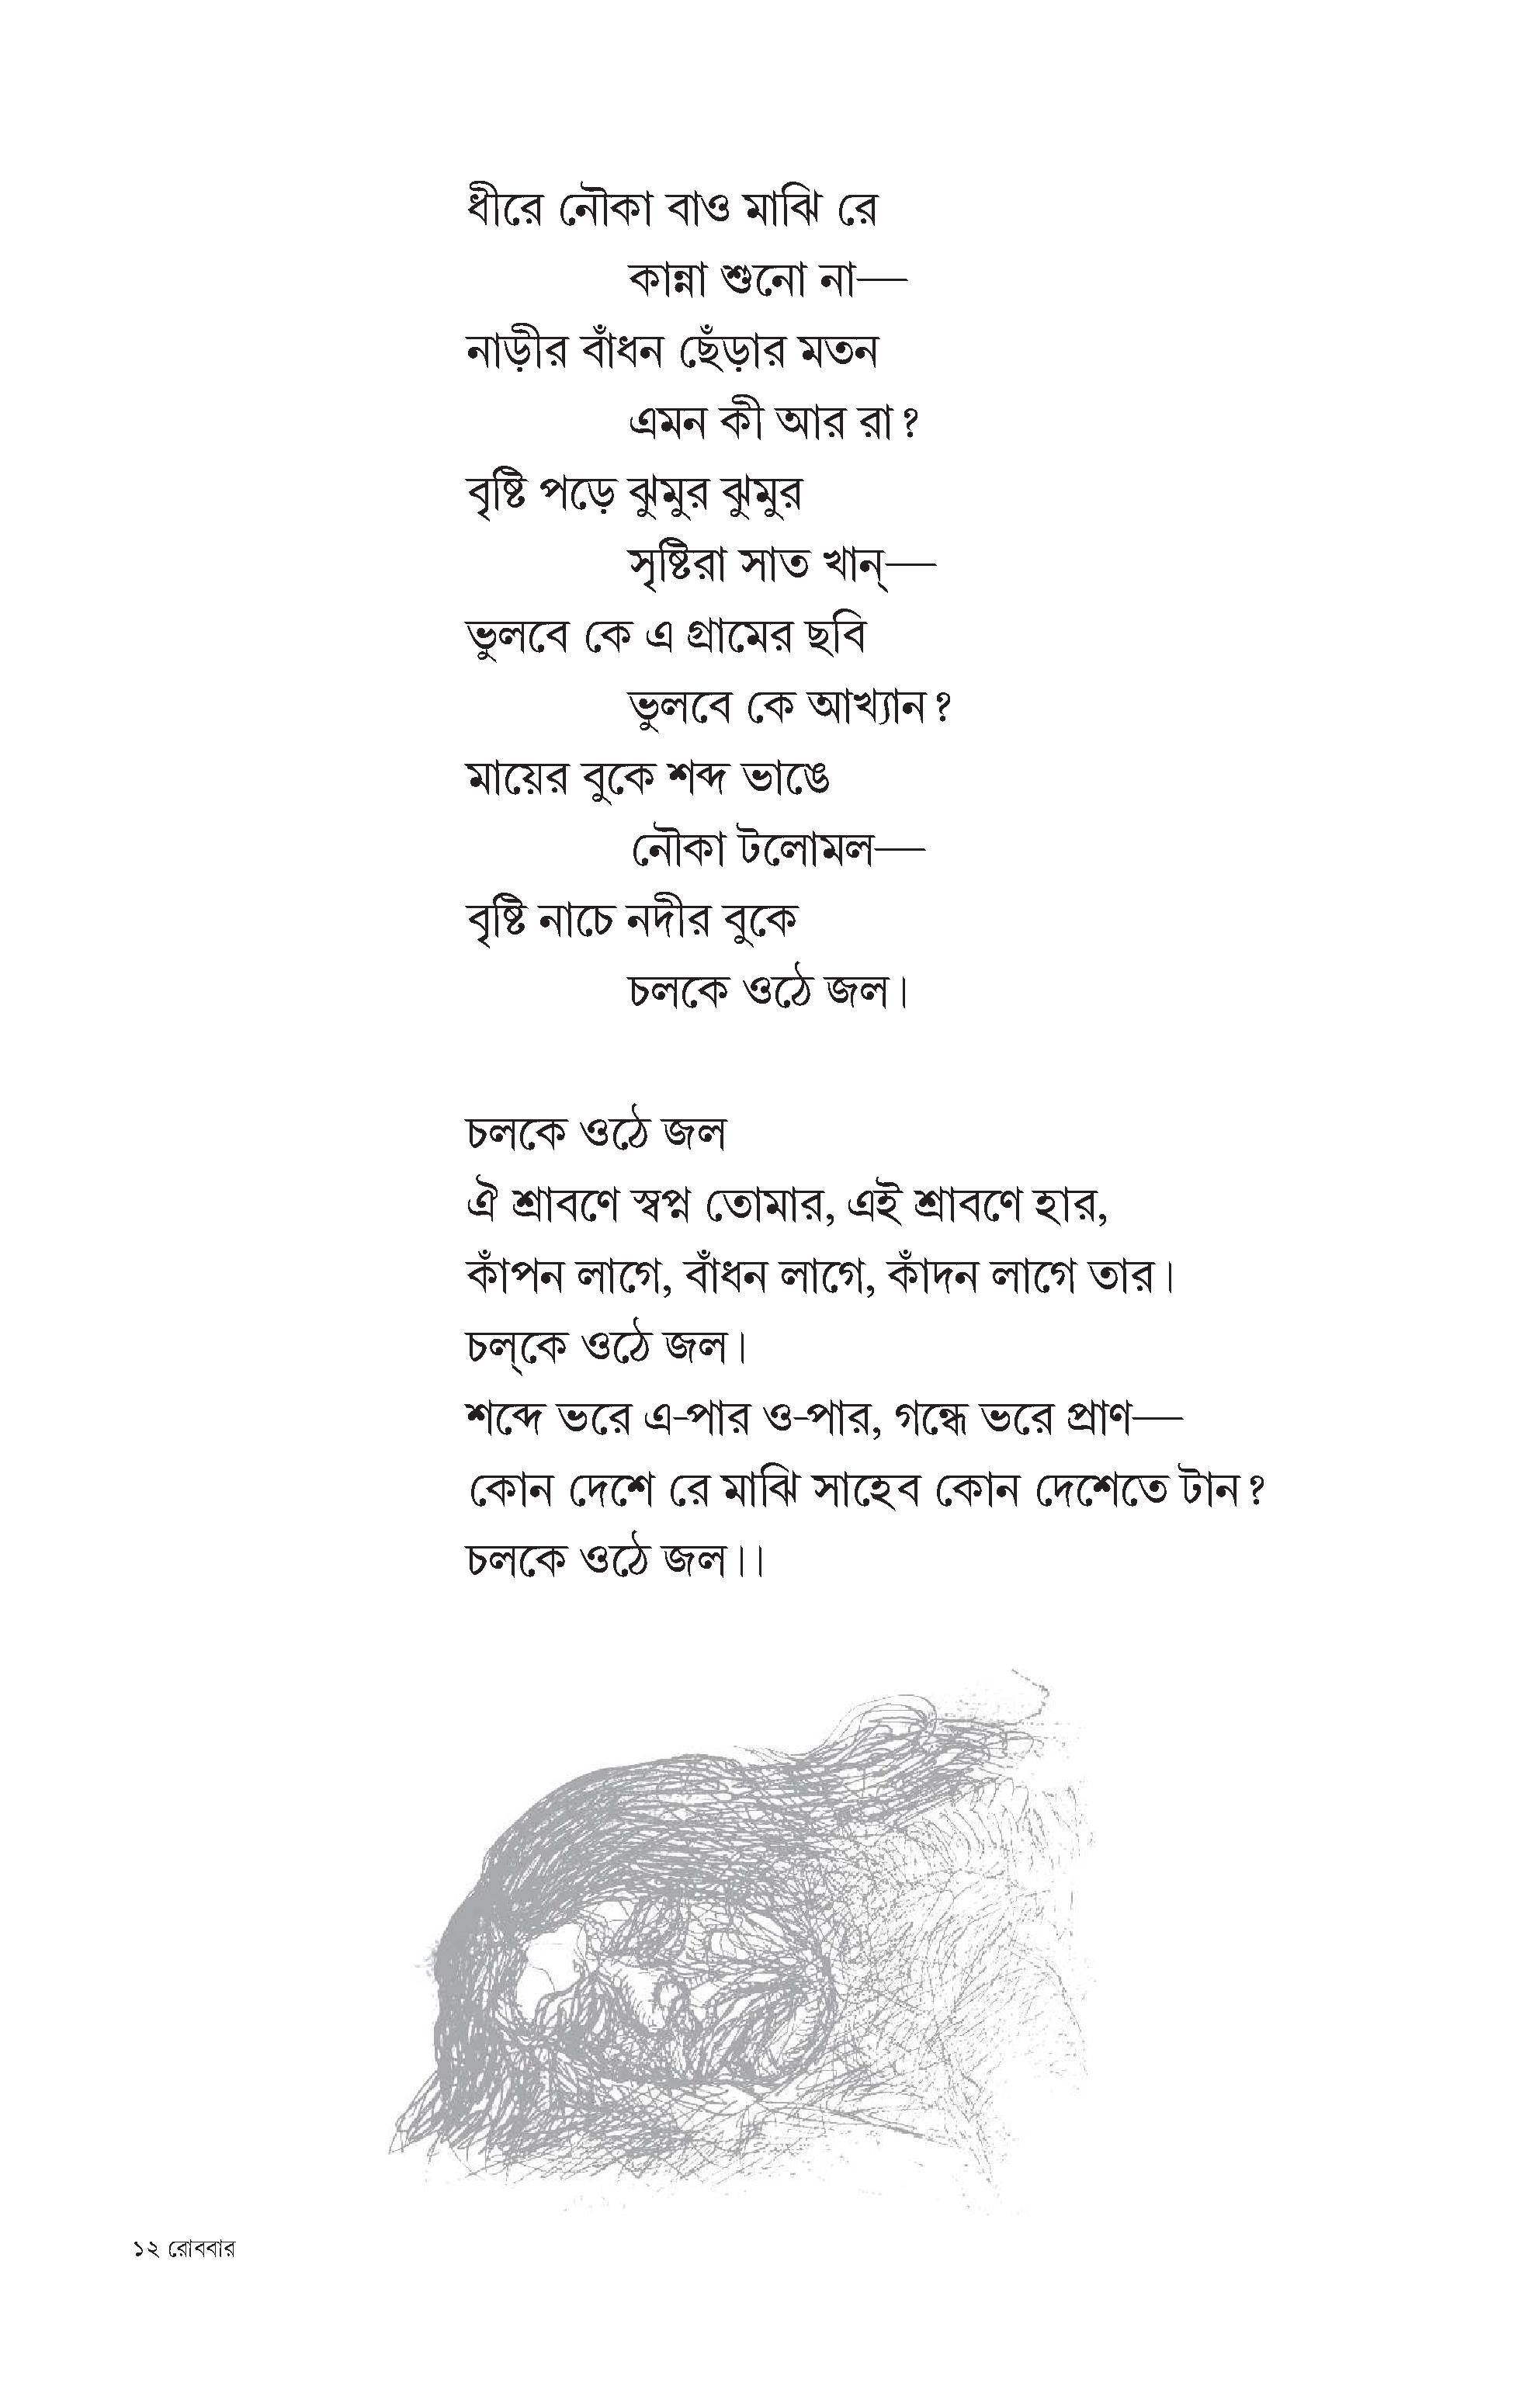 ধীরে নৌকা বাও মাঝি রে
কান্না শুনো না—
নাড়ীর বাঁধন ছেঁড়ার মতন
এমন কী আর রা?
বৃষ্টি পড়ে ঝুমুর ঝুমুর
সৃষ্টিরা সাত খান্—
ভুলবে কে এ গ্রামের ছবি
ভুলবে কে আখ্যান?
মায়ের বুকে শব্দ ভাঙে
নৌকা টলোমল—
বৃষ্টি নাচে নদীর বুকে
চলকে ওঠে জল।
চলকে ওঠে জল
ঐ শ্রাবণে স্বপ্ন তোমার, এই শ্রাবণে হার,
কাঁপন লাগে, বাঁধন লাগে, কাঁদন লাগে তার।
চল্‌কে ওঠে জল।
শব্দে ভরে এ-পার ও-পার, গন্ধে ভরে প্রাণ—
কোন দেশে রে মাঝি সাহেব কোন দেশেতে টান?
চলকে ওঠে জল।।
১২ রোববার